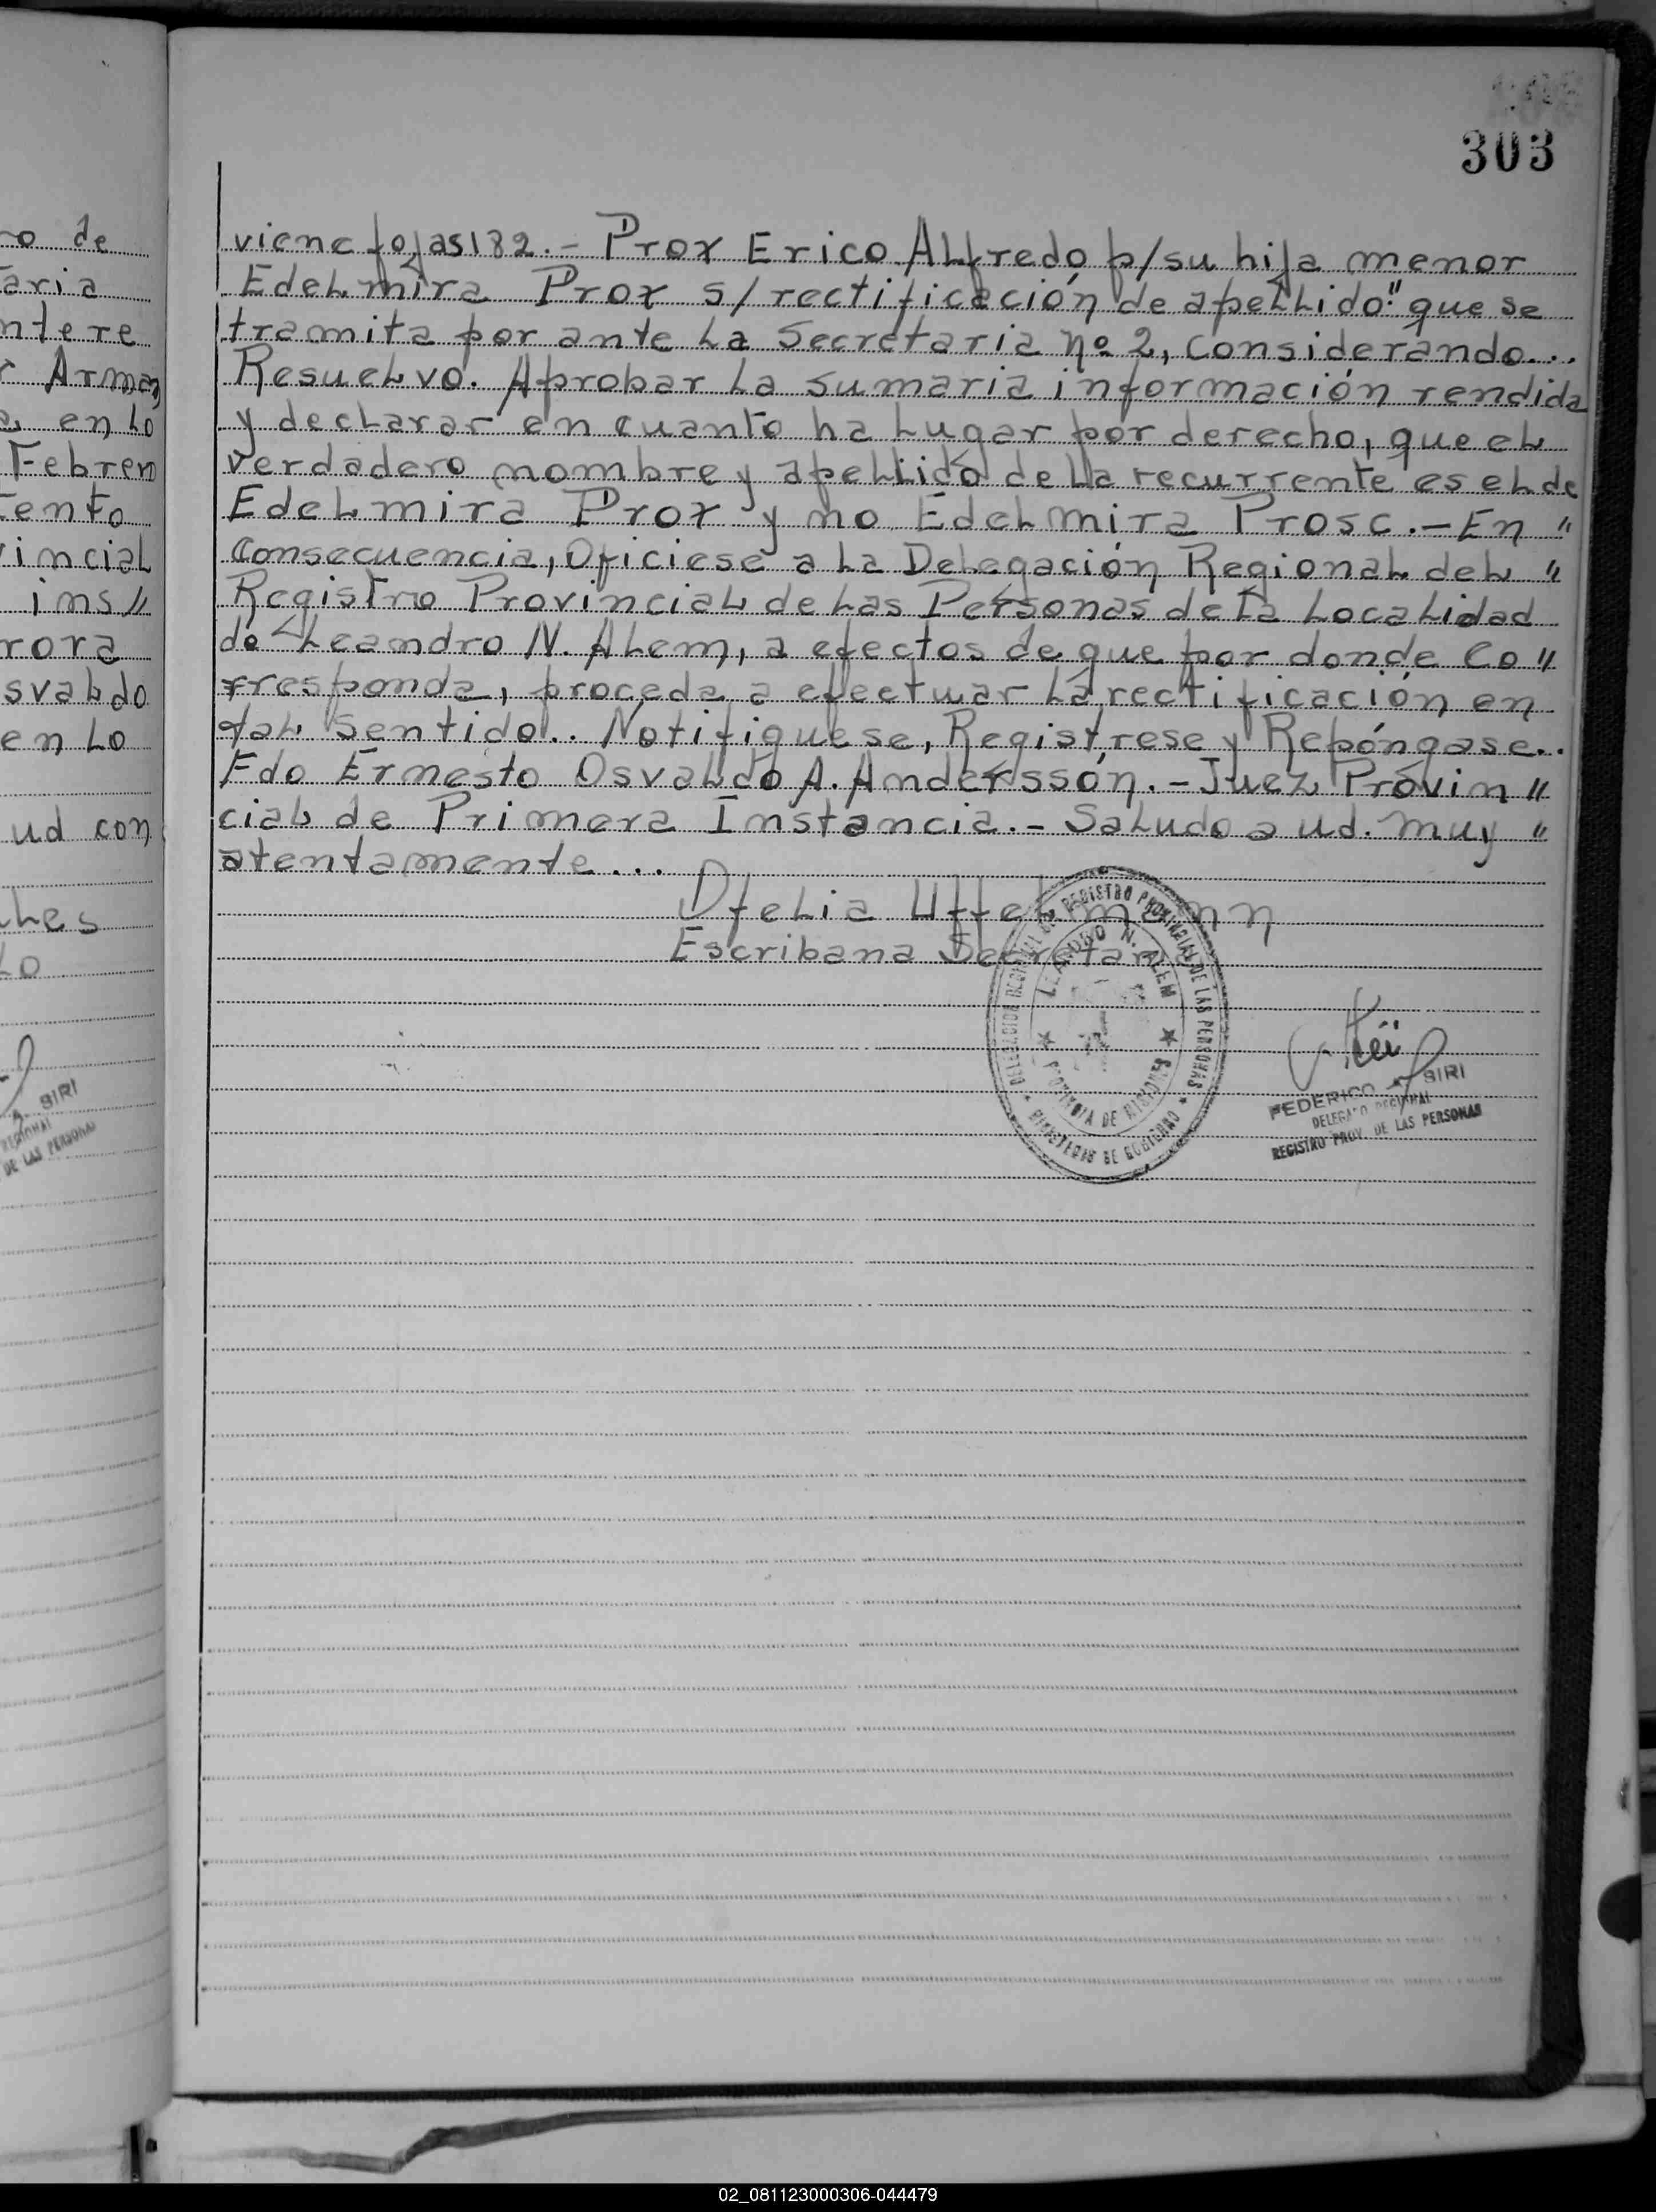 303
viene fojas 182.- Prox Erico Alfredo p/su hija menor
Edelmira Prox s/rectificación de apellido." que se
tramita por ante la Secretaria nº 2, Considerando...
Resuelvo. Aprobar la sumaria información rendida
y declarar en cuanto ha lugar por derecho, que el
verdadero nombre y apellido de la recurrente es el de
Edelmira Prox y no Edelmira Prosc.- En "
Consecuencia, Oficiese a la Delegación Regional del "
Registro Provincial de las Personas de la Localidad
de Leandro N. Alem, a efectos de que por donde Co "
rresponda, proceda a efectuar la rectificación en
tal sentido.. Notifiquese, Registrese y Repóngase..
Fdo Ernesto Osvaldo A. Anderssón.- Juez Provin "
cial de Primera Instancia.- Saludo a ud. muy "
atentamente...
Ofelia Uffelmann
Escribana Secretaria
DELEGACION REGIONAL DEL REGISTRO PROVINCIAL DE LAS PERSONAS
LEANDRO N. ALEM
PROVINCIA DE MISIONES
MINISTERIO DE GOBIERNO
FEDERICO A. SIRI
DELEGADO REGIONAL
REGISTRO PROV. DE LAS PERSONAS
ro de
aria
ntere
r Arman
a, en lo
Febrero
tento
vincial
ins//
rora
svaldo
en lo
ud con
les
lo
A. SIRI
REGIONAL
DE LAS PERSONAS
02_081123000306-044479